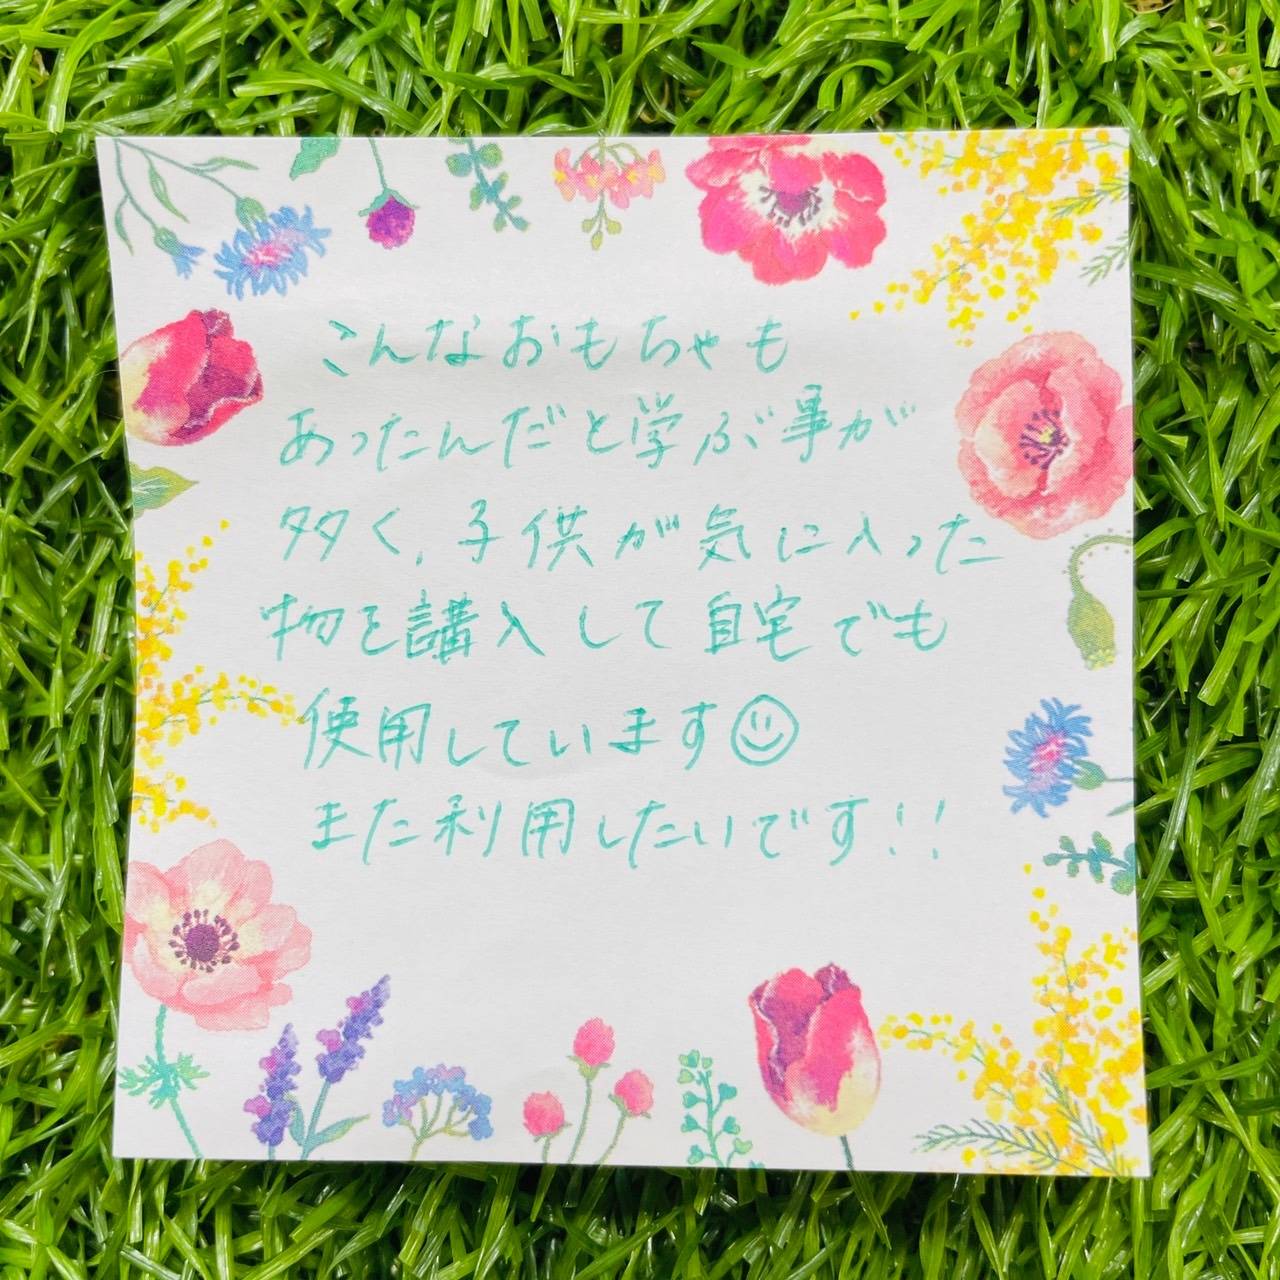 こんなおもちゃも
あったんだと学ぶ事が
多く、子供が気に入った
物を講入して自宅でも
使用しています☺
また利用したいです!!